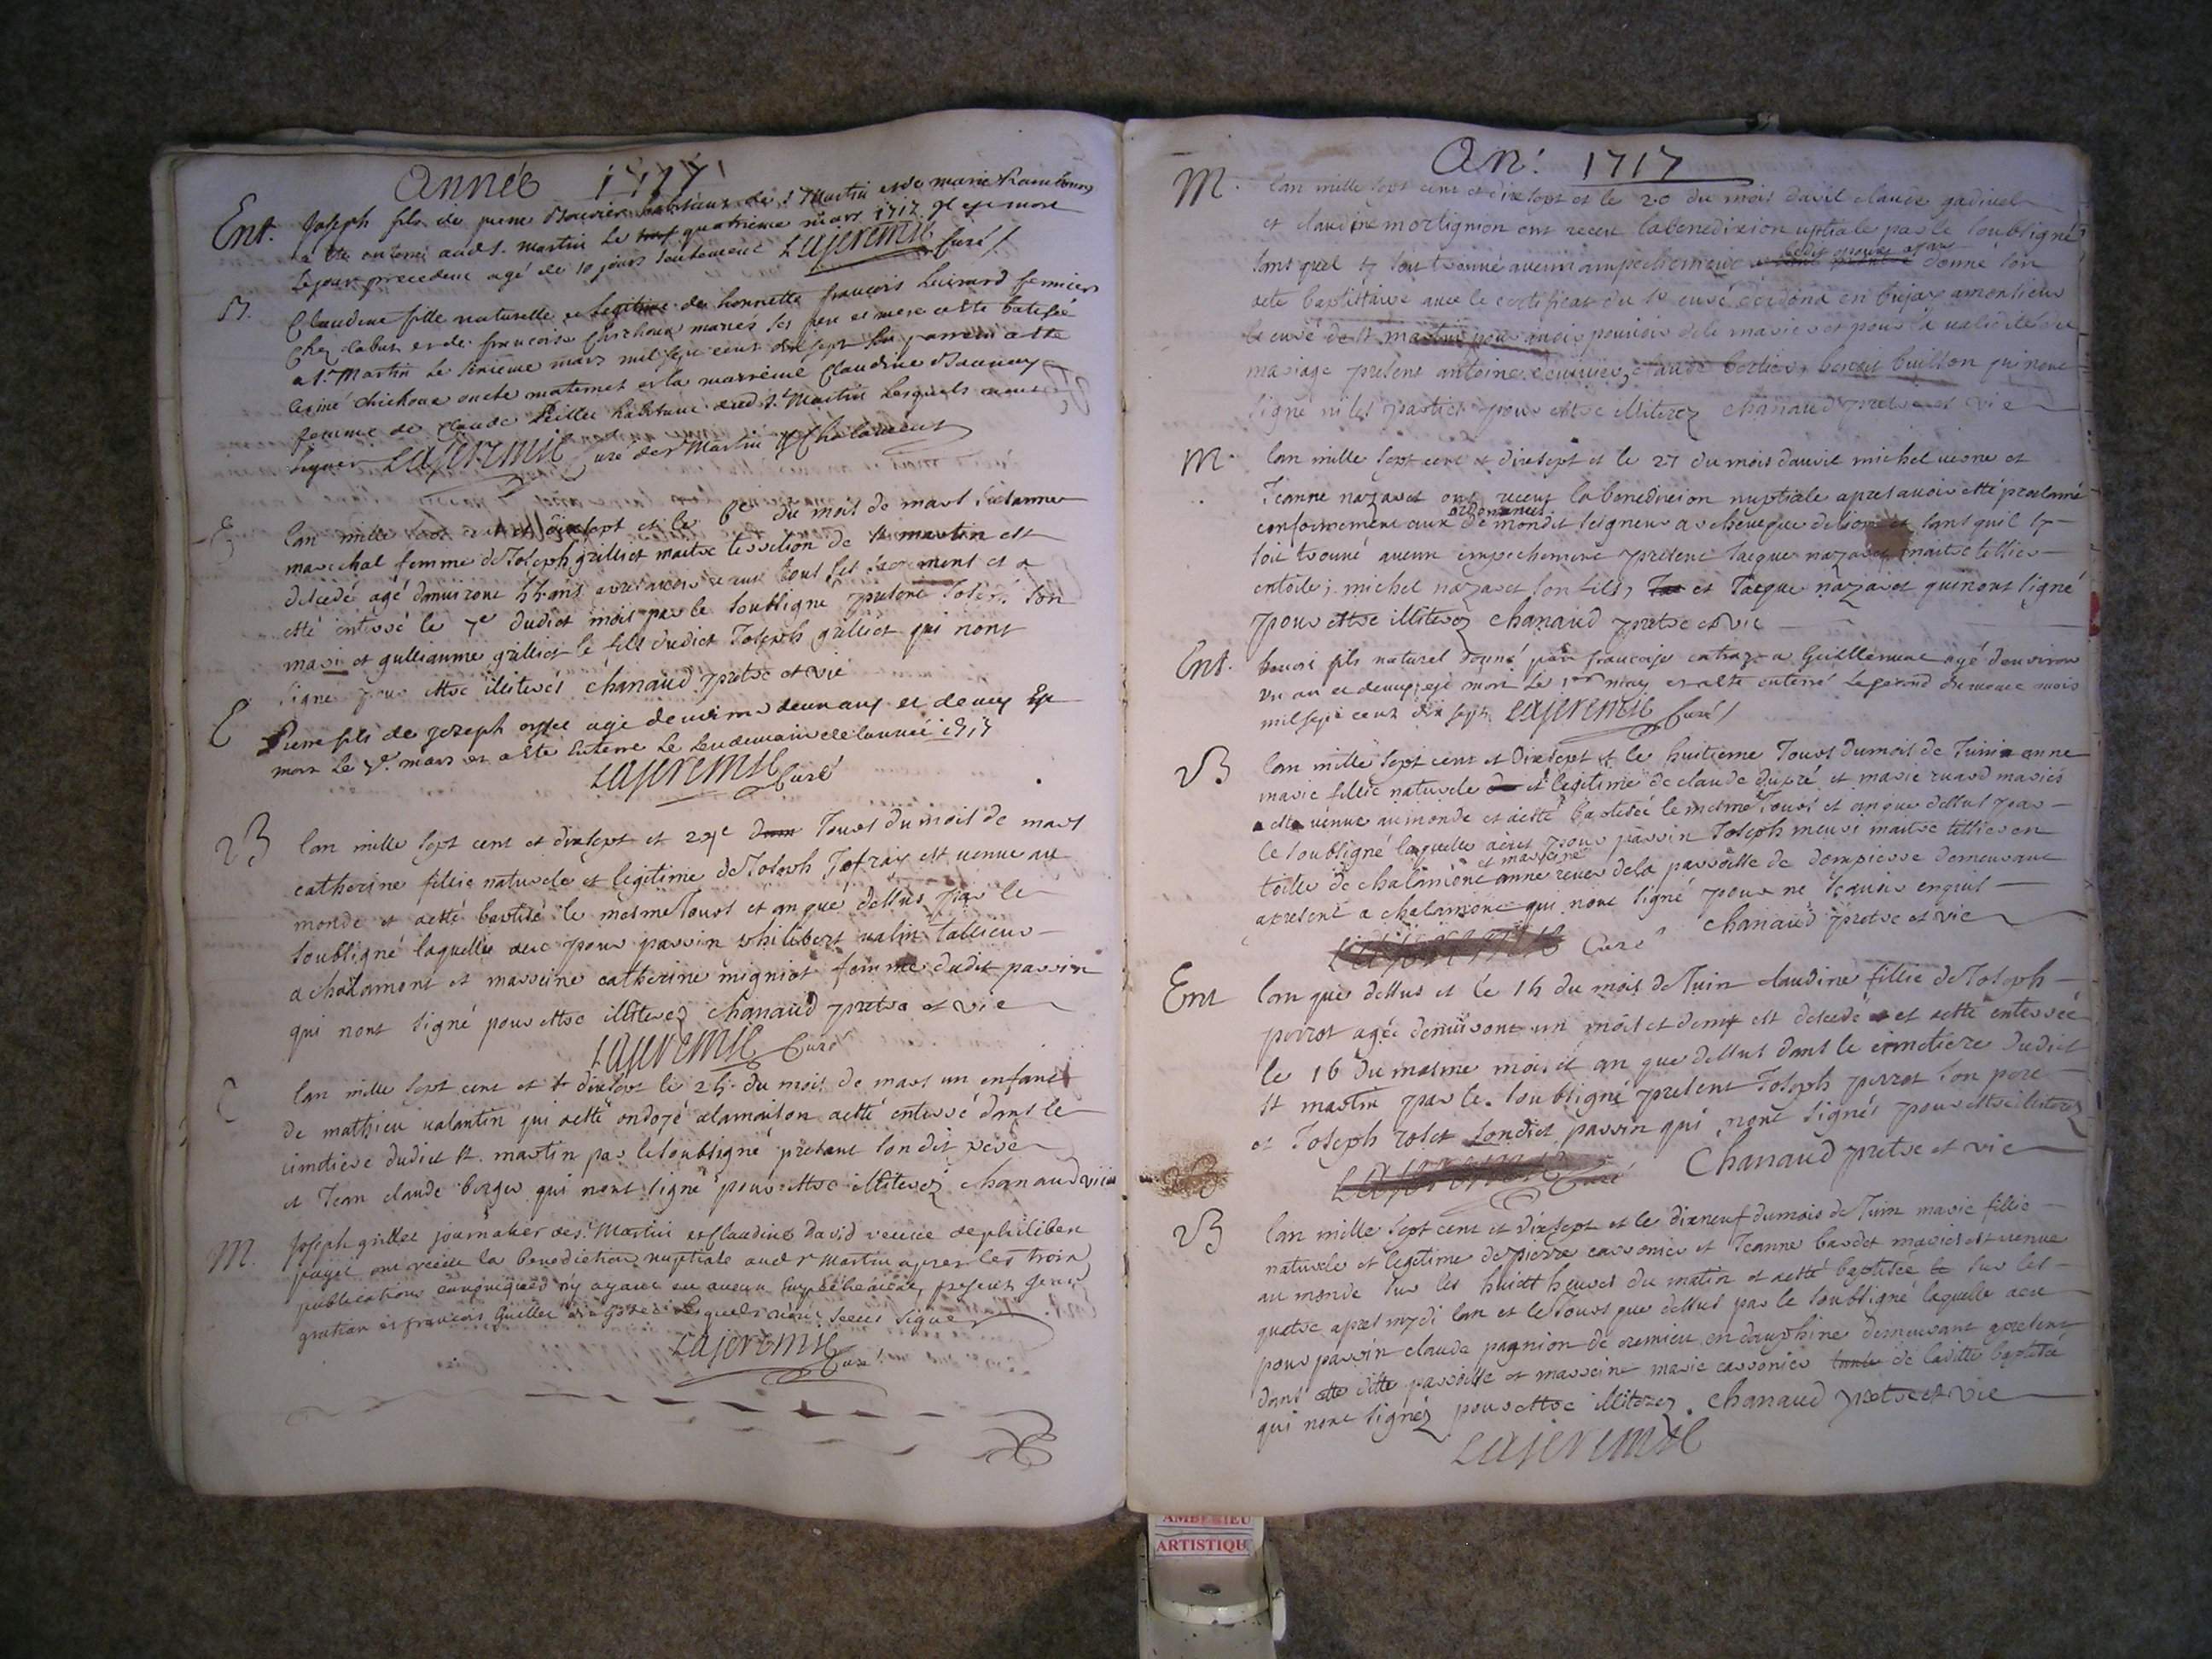 Année 1717
Ent. Joseph fils de pierre habitant de s. Martin et de marie
a ete enterré aud s. martin le quatrieme mars 1717 yl est mort
le jour precedent agé de 10 jours seulement Lajeremie Curé
B. Claudine fille naturelle et legitime de honneste françois fermier
Chez et de francoise mariés ses pere et mere a este batisée
a s. Martin le sixieme mars mil sept cent dix sept son parrein a este
oncle maternel et la marreine Claudine
femme de Claude habitant aud s. Martin lesquels
signer Lajeremie Curé de s Martin de Chalamont
E lan mille sept cent et dixsept et le 6e du mois de mars Susanne
marechal femme de Joseph grilliet maitre de st martin est
decedé agé danviront ans avoir receu tous ses sacrement et a
esté enterré le 7e dudict mois par le soubsigné present Joseph son
mari et guilliaume grilliet le fils dudict Joseph grilliet qui nont
signe pour estre illiterés chanaud pretre et vic
E Pierre fils de Jozeph agé denviron deux ans et demy est
mort le mars et a este enterre le lendemain de lannée 1717
Lajeremie Curé
B lan mille sept cent et dixsept et 24e Jours du mois de mars
catherine fillie naturele et legitime de Joseph Jofray est venue au
monde et aesté baptisé le mesme Jours et an que dessus par le
soubsigné laquelle a eu pour parrin philibert valin tallieur
a chalamont et marreine catherine migniot femme dudit parrin
qui nont signé pour estre illiterez chanaud pretre et vic
Lajeremie Curé
lan mille sept cent et dixsept le du mois de mars un enfant
de mathieu valantin qui aesté ondoyé alamaison aesté enterré dans le
cimetiere dudict st. martin par le soubsigné present son dit pere
et Jean claude berger qui nont signé pour estre illiterez chanaud vic
M. Joseph grillet journalier de s. Martin et Claudine David veuve de philibert
ont receu la benediction nuptiale aud s Martin apres les trois
publications ny ayant eu aucun empechement, presents
gratian et francois lesquels nont sceu signer
Lajeremie
Curé
An: 1717
M. lan mille sept cent et dixsept et le 20 du mois davril claude gadinel
et claudine mortignion ont receu la benedixion nuptiale par le soubsigné
sans quil sy soit trouvé aucun ampechement ledit epoux ayant donné son
acte baptistaire avec le certificat du sr curé en bujay a monsieur
le curé de st martin pour avoir pouvoir de le marier et pour la validité du
mariage present antoine claude bertier, benoit buillon qui nont
signé ni les parties pour estre illiterez chanaud pretre et vic
M. lan mille sept cent et dixsept et le 27 du mois davril michel et
Jeanne nazaret ont receut la benedixion nuptiale apres avoir esté proclamé
conformement aux ordonnances de mondit seigneur archeveque de lion et sans quil sy
soit trouvé aucun empechement present Jacque nazaret maitre tissier
en toile, michel nazaret son fils, et Jacque nazaret qui nont signé
pour estre illiterez chanaud pretre et vic
Ent. benoit fils naturel donné par francoise a Guillemine agé denviron
un an et demy est mort le 1er may et a este enterré le second du meme mois
mil sept cent dix sept Lajeremie Curé
B lan mille sept cent et dixsept et le huitieme Jours du mois de Juin anne
marie fillie naturele et legitime de claude dupré et marie ruard mariés
est venue au monde et aesté baptisée le mesme Jours et an que dessus par
le soubsigné laquelle a eu pour parrin Joseph maitre tissier en
toile de chalamont et marreine anne de la parroisse de dompierre demeurant
apresent a chalamont qui nont signé pour ne scavoir enquis
Lajeremie Curé chanaud pretre et vic
Ent lan que dessus et le du mois de Juin claudine fillie de Joseph
perrot agée denviront un mois et demy est decedé et aesté enterrée
le 16 du mesme mois et an que dessus dans le cimetiere dudict
st martin par le soubsigné present Joseph perrot son pere
et Joseph rolet sondict parrin qui nont signés pour estre illiterez
Lajeremie Curé Chanaud pretre et vic
B lan mille sept cent et dixsept et le dixneuf du mois de Juin marie fillie
naturele et legitime de pierre carronier et Jeanne bardet mariés est venue
au monde sur les huict heures du matin et aesté baptisée sur les
quatre apres mydi lan et le Jours que dessus par le soubsigné laquelle a eu
pour parrin claude pagnion de cremieu en dauphine demeurant apresent
dans cette ditte parroisse et marreine marie carronier tante de laditte baptisée
qui nont signéz pour estre illiterez. chanaud pretre et vic
Lajeremie
AMBERIEU
ARTISTIQU